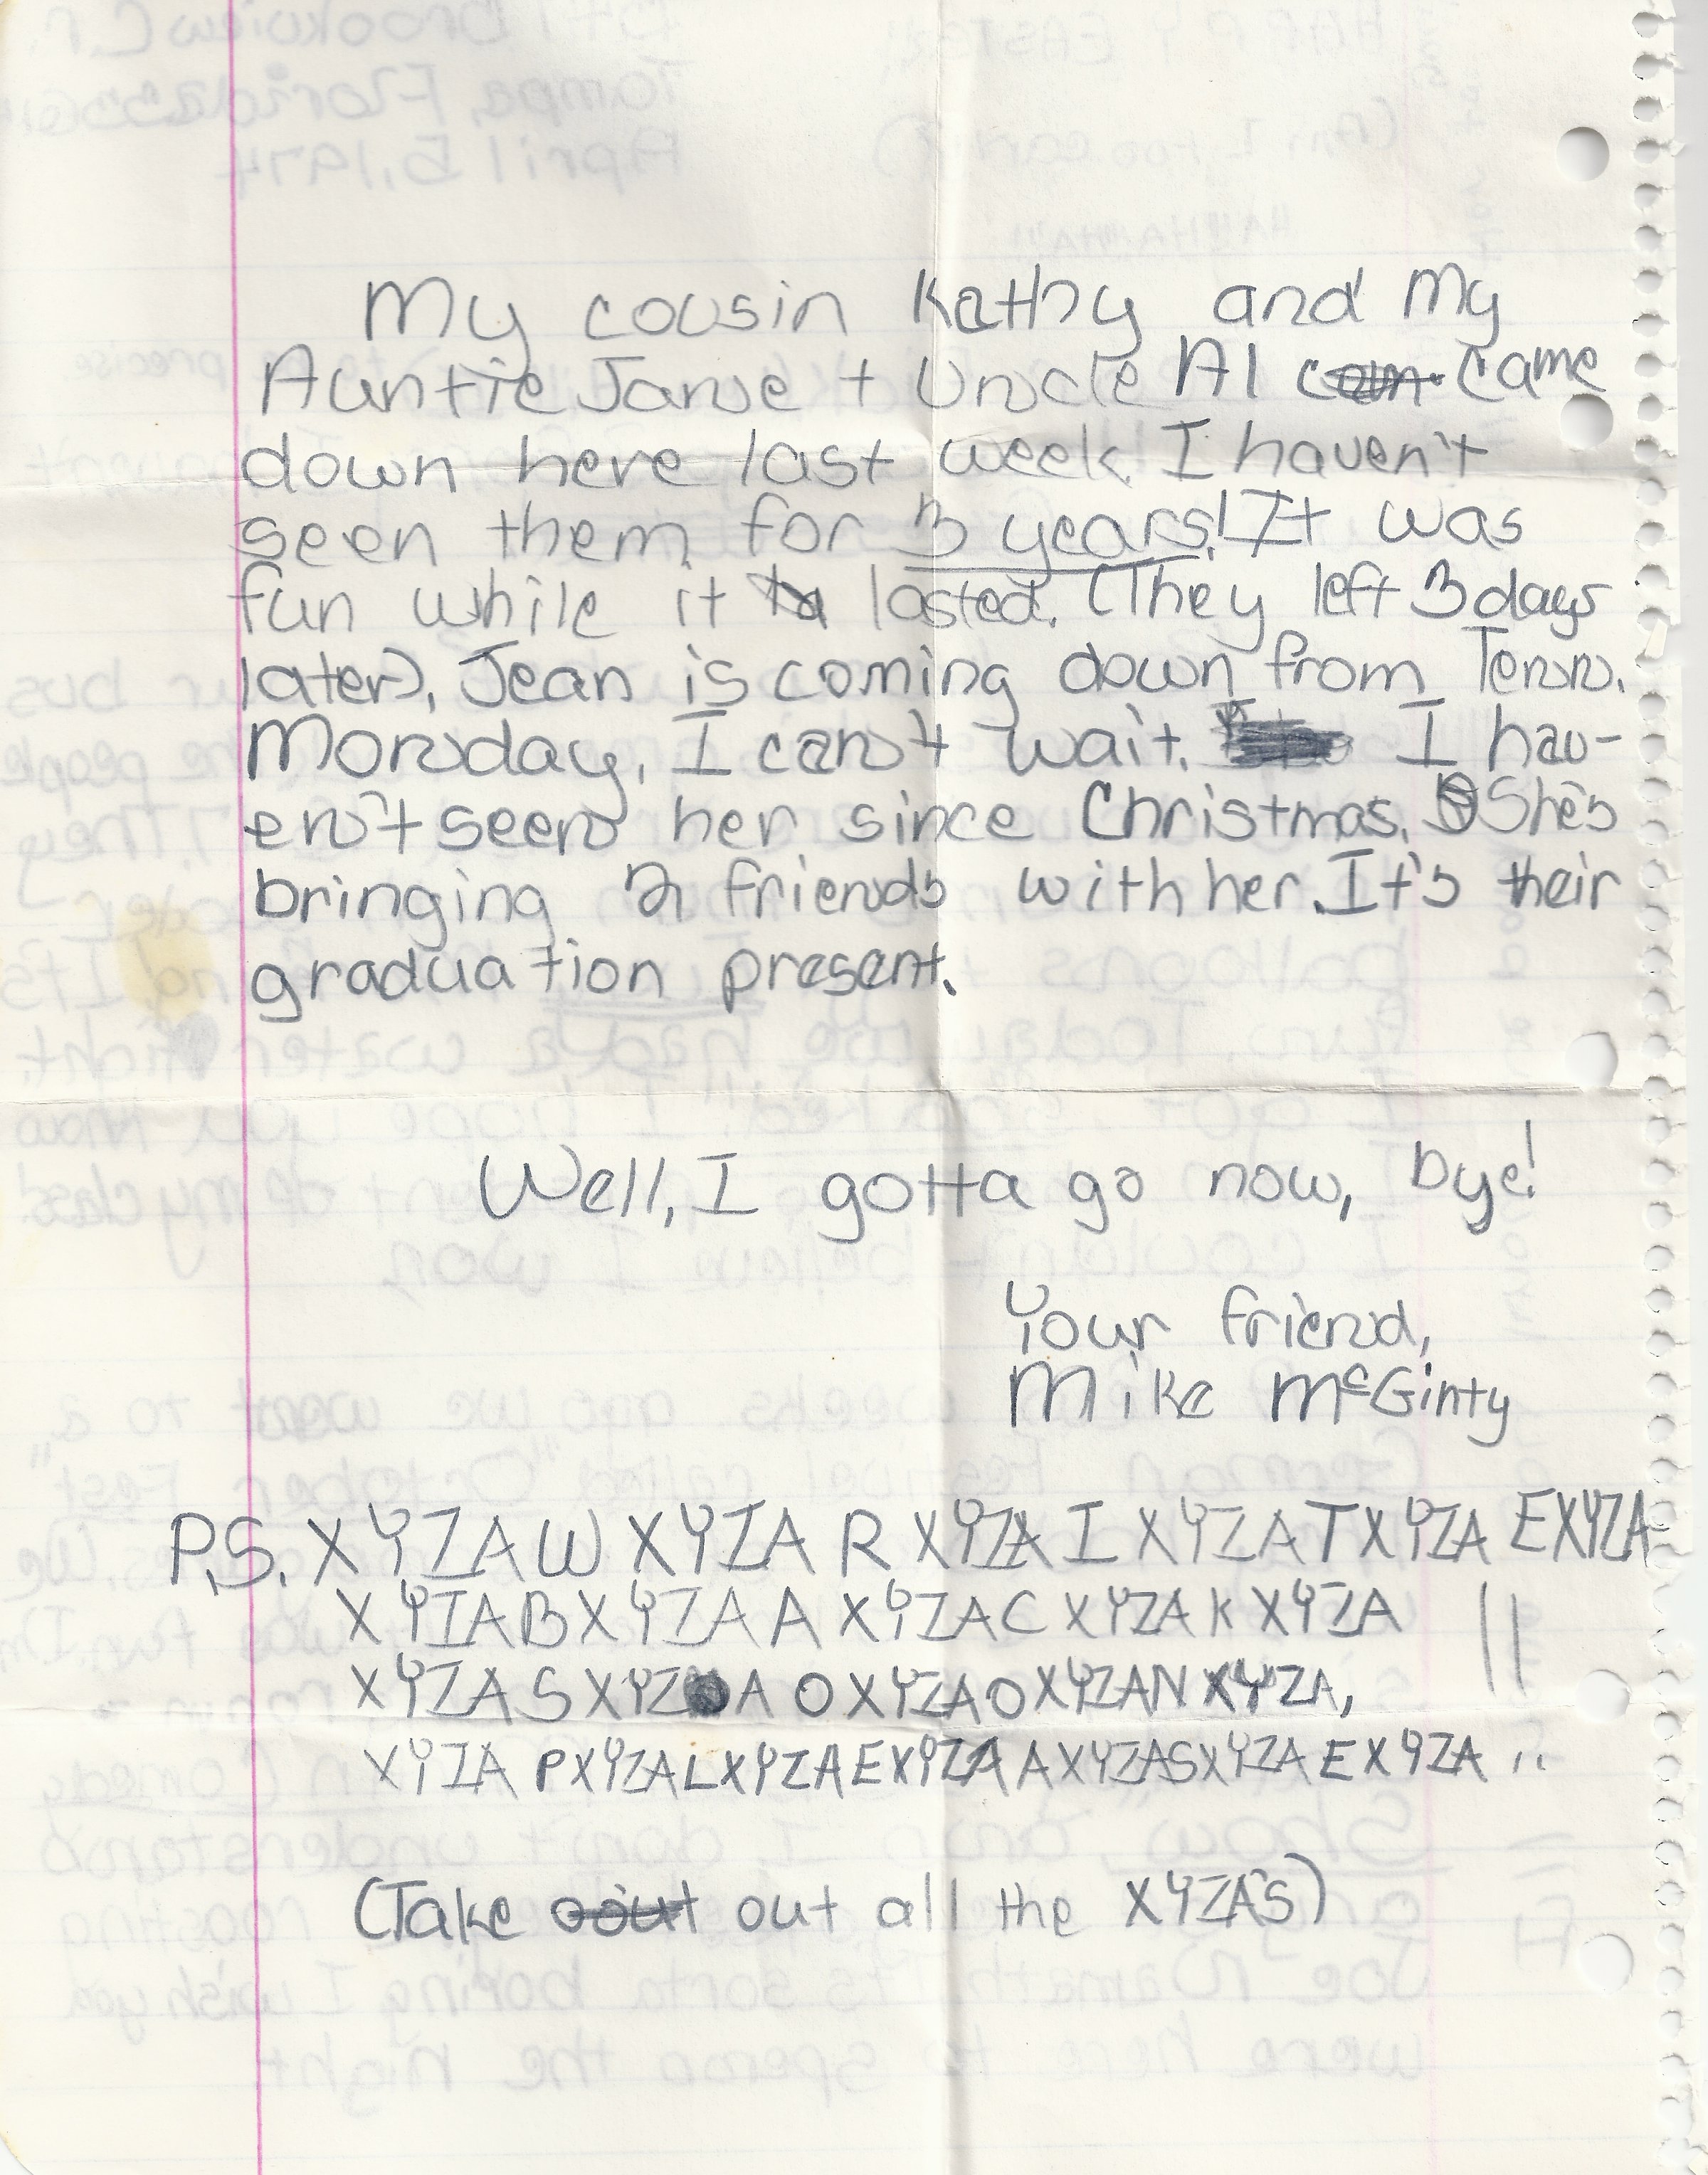 My cousin Kathy and My
Auntie Jane + Uncle Al came
down here last week. I haven't
seen them for 3 years! It was
fun while it lasted. (They left 3 days
later). Jean is coming down from Tenn.
Monday, I can't wait. I hav-
en't seen her since Christmas. She's
bringing 2 friends with her. It's their
graduation present.
Well, I gotta go now, bye!
Your friend,
Mike McGinty
P.S. XYZAWXYZARXYZAIXYZATXYZAEXYZA
XYZABXYZAAXYZACXYZAKXYZA
XYZASXYZAOXYZAOXYZANXYZA,
XYZAPXYZALXYZAEXYZAAXYZASXYZAEXYZA !!
(Take out all the XYZA'S)